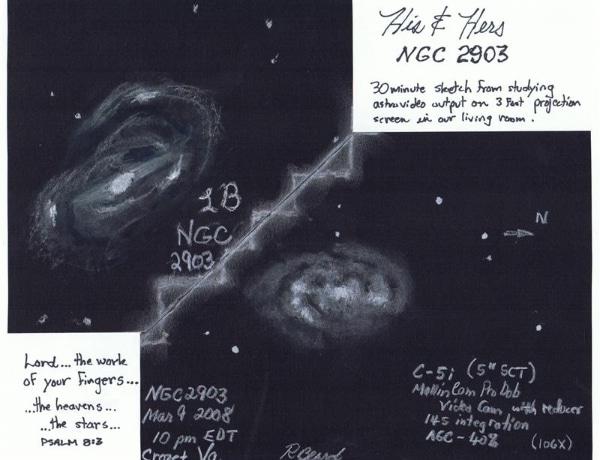 His & Hers
NGC 2903
30 minute sketch from studying
astrovideo output on 3 Foot projection
screen in our living room.
LB
NGC
2903
N
Lord... the work
of your fingers...
...the heavens...
...the stars...
PSALM 8:3
NGC 2903
Mar 9 2008
10 pm EDT
Crozet Va
C-5i (5" SCT)
MallinCam Pro Dob
Video Cam with reducer
14S integration
AGC - 40% (106X)